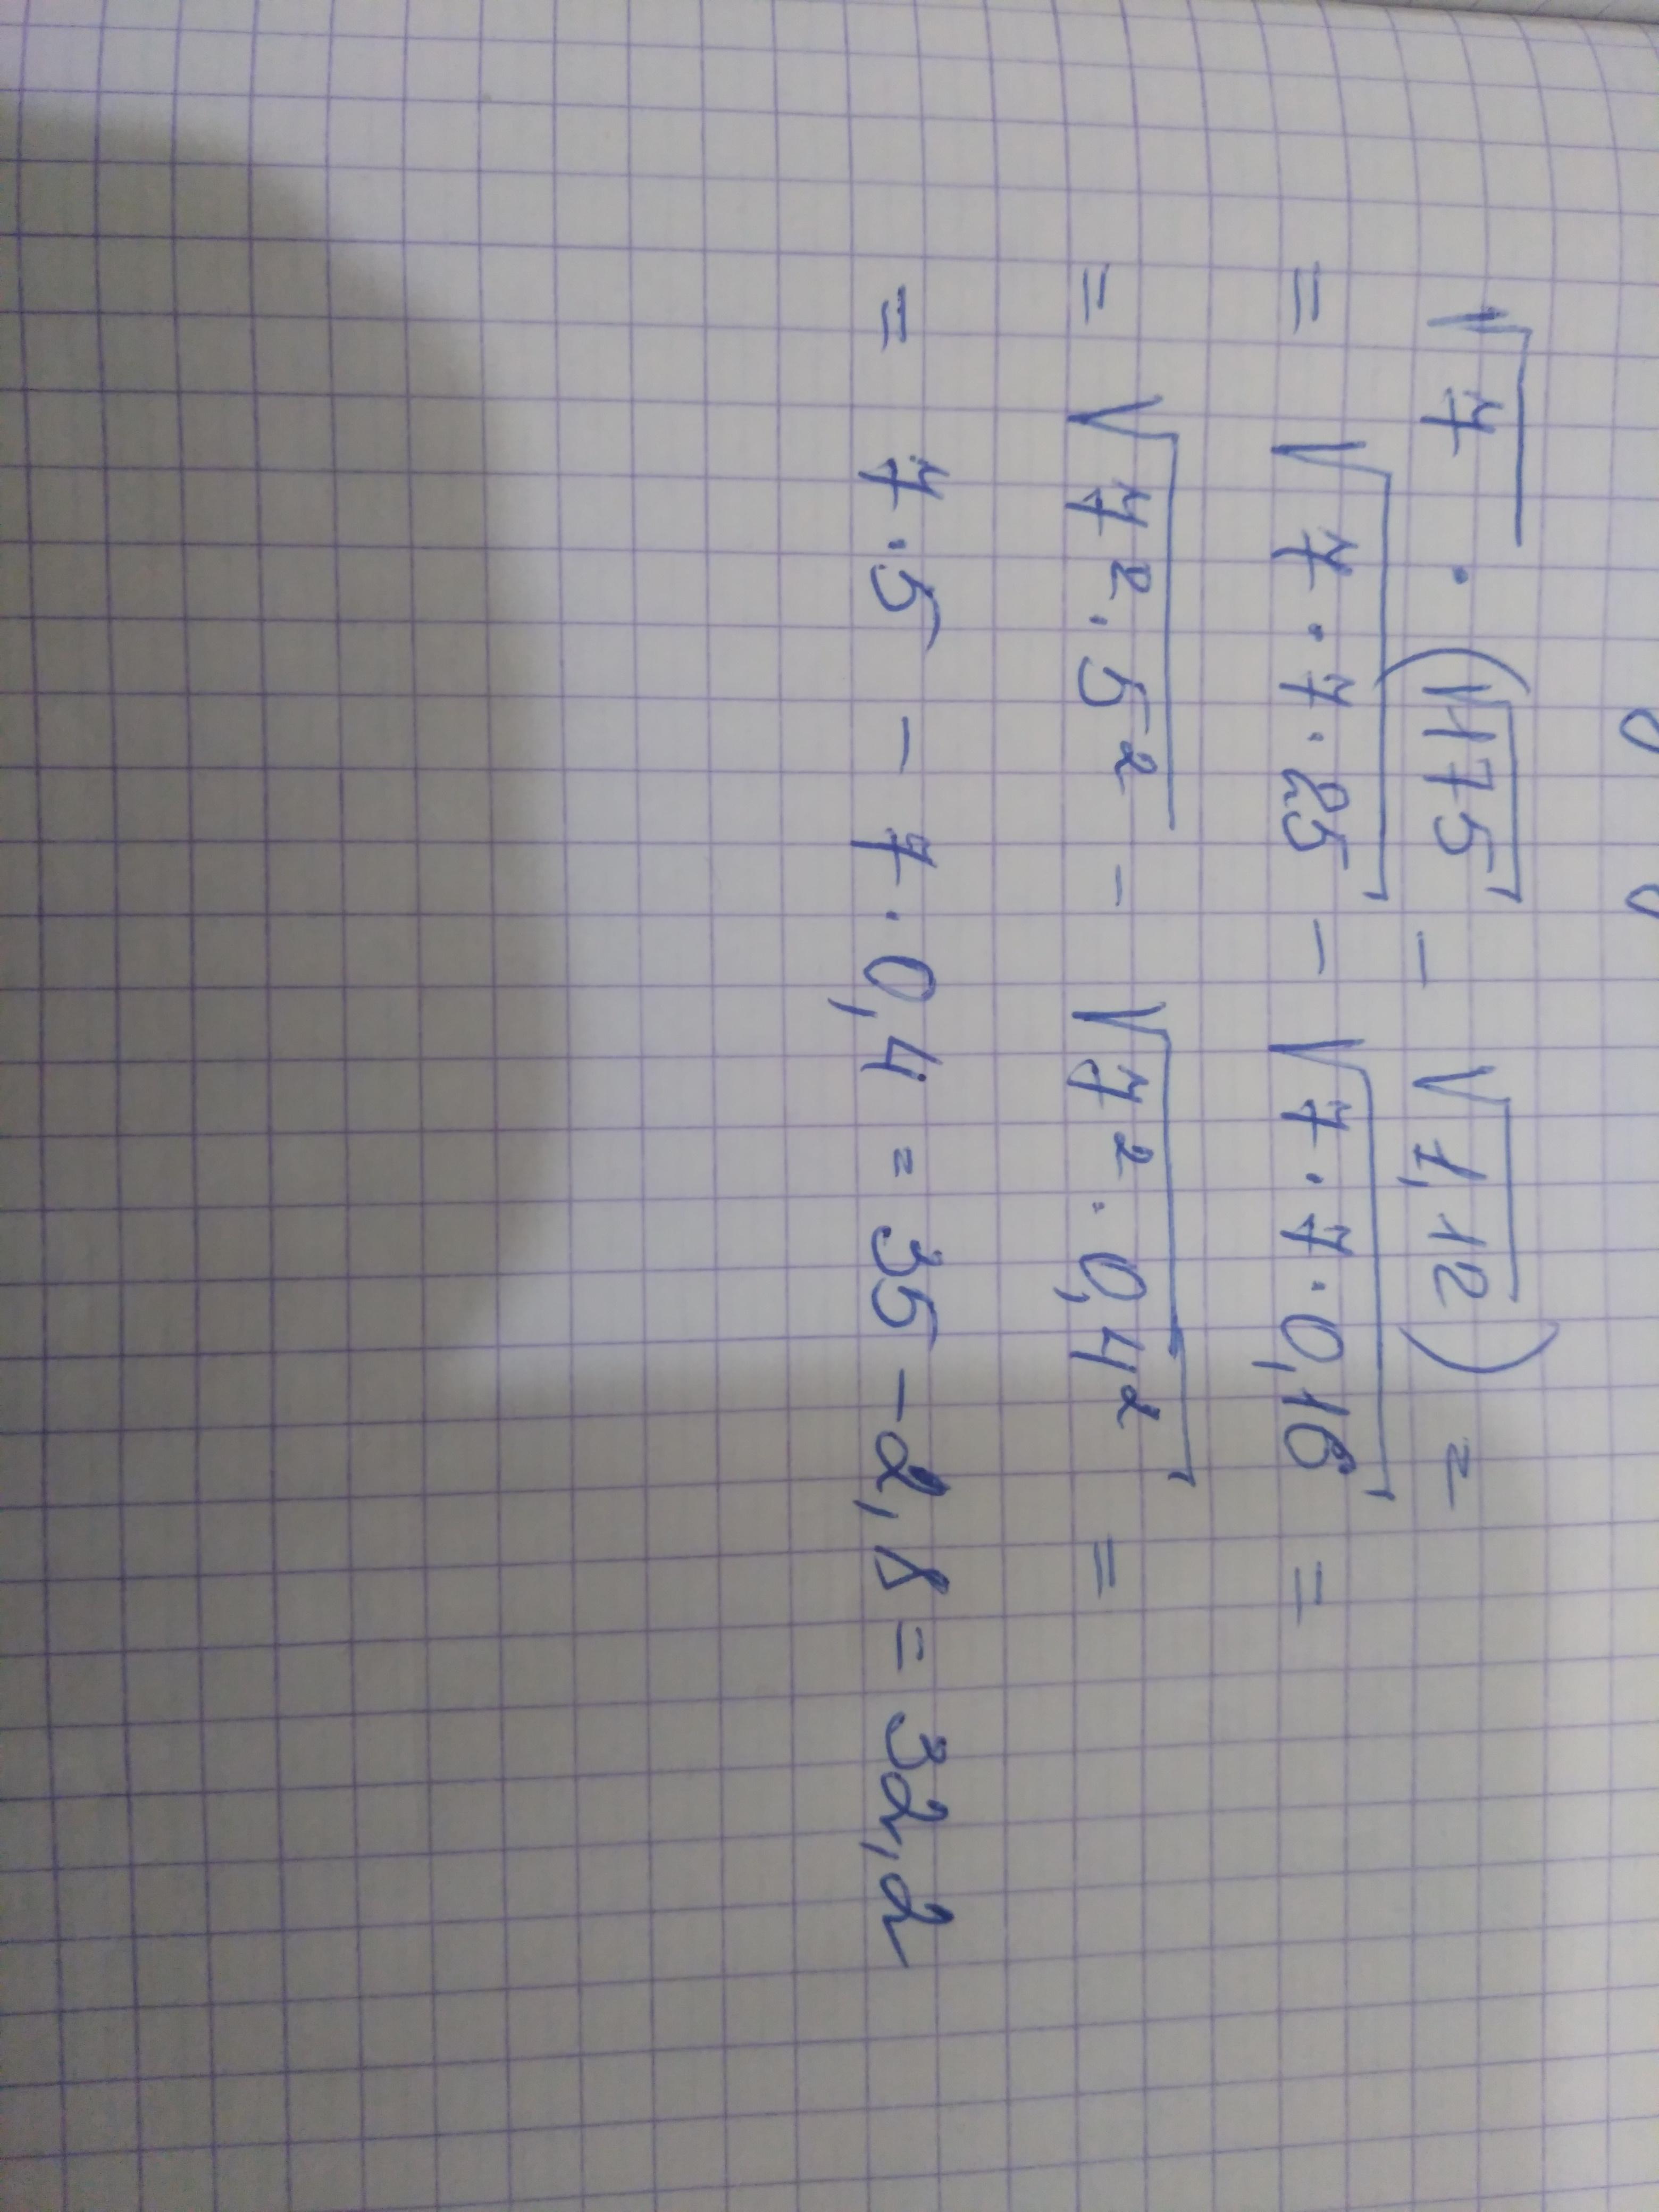 √7 · (√175 - √1,12) =
= √7 · 7 · 25 - √7 · 7 · 0,16 =
= √7² · 5² - √7² · 0,4² =
= 7 · 5 - 7 · 0,4 = 35 - 2,8 = 32,2